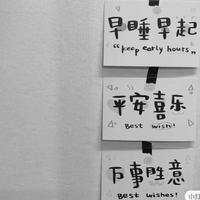 早睡早起
“keep early hours”
平安喜乐
Best wish!
万事胜意
Best wishes!